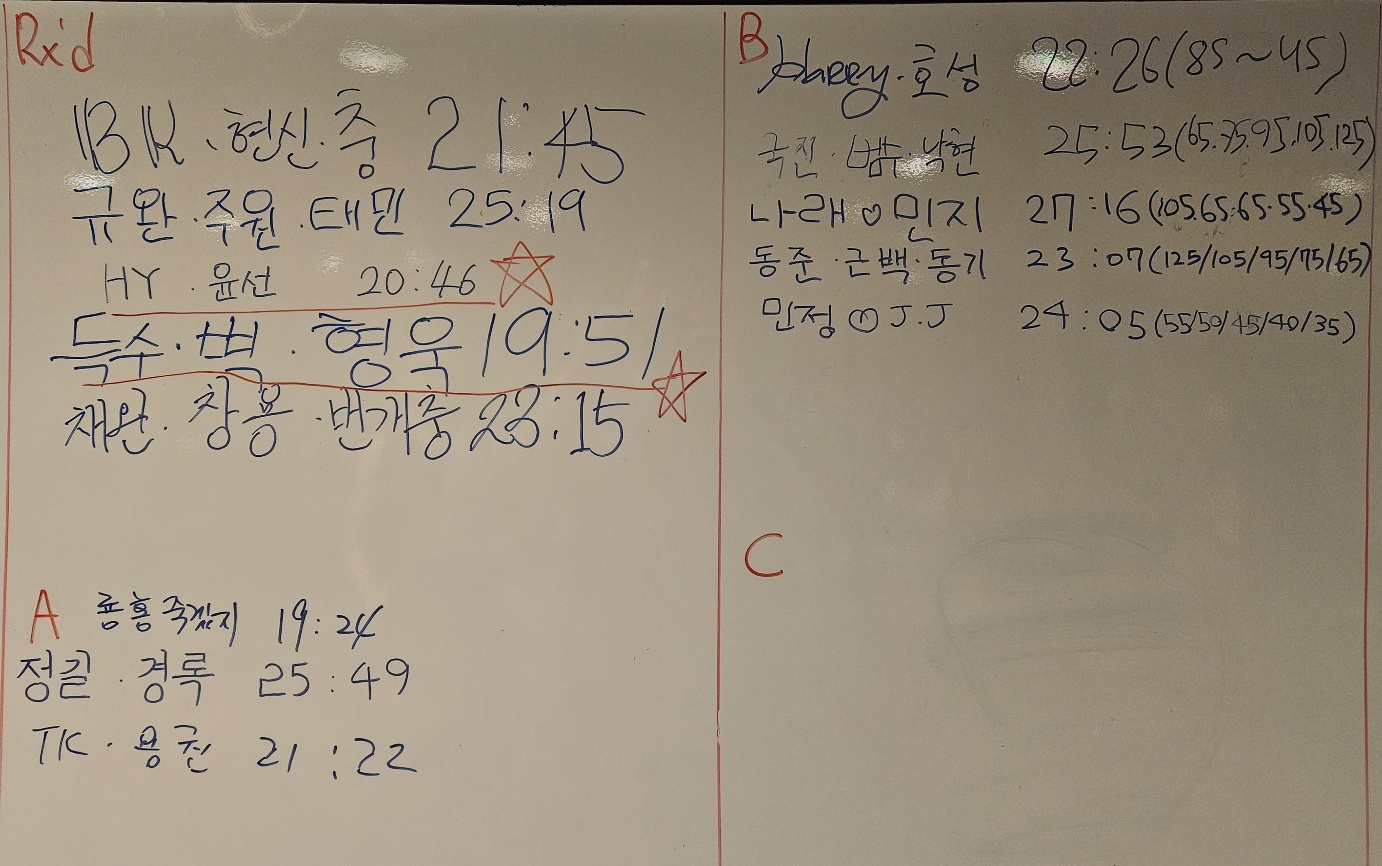 Rx'd
BK · 현신 · 충 21:45
규완 · 주원 · 태민 25:19
HY · 윤선 20:46
득수 · 벽 · 형욱 19:51
채완 · 창용 · 번개충 23:15
A
19:24
정길 · 경록 25:49
TK · 용권 21:22
B
호성 22:26(85~45)
국진 · 범수 · 낙현 25:53(65.75.95.105.125)
나래♡민지 27:16(105.65.65.55.45)
동준 · 근백 · 동기 23:07(125/105/95/75/65)
민정 J.J 24:05(55/50/45/40/35)
C